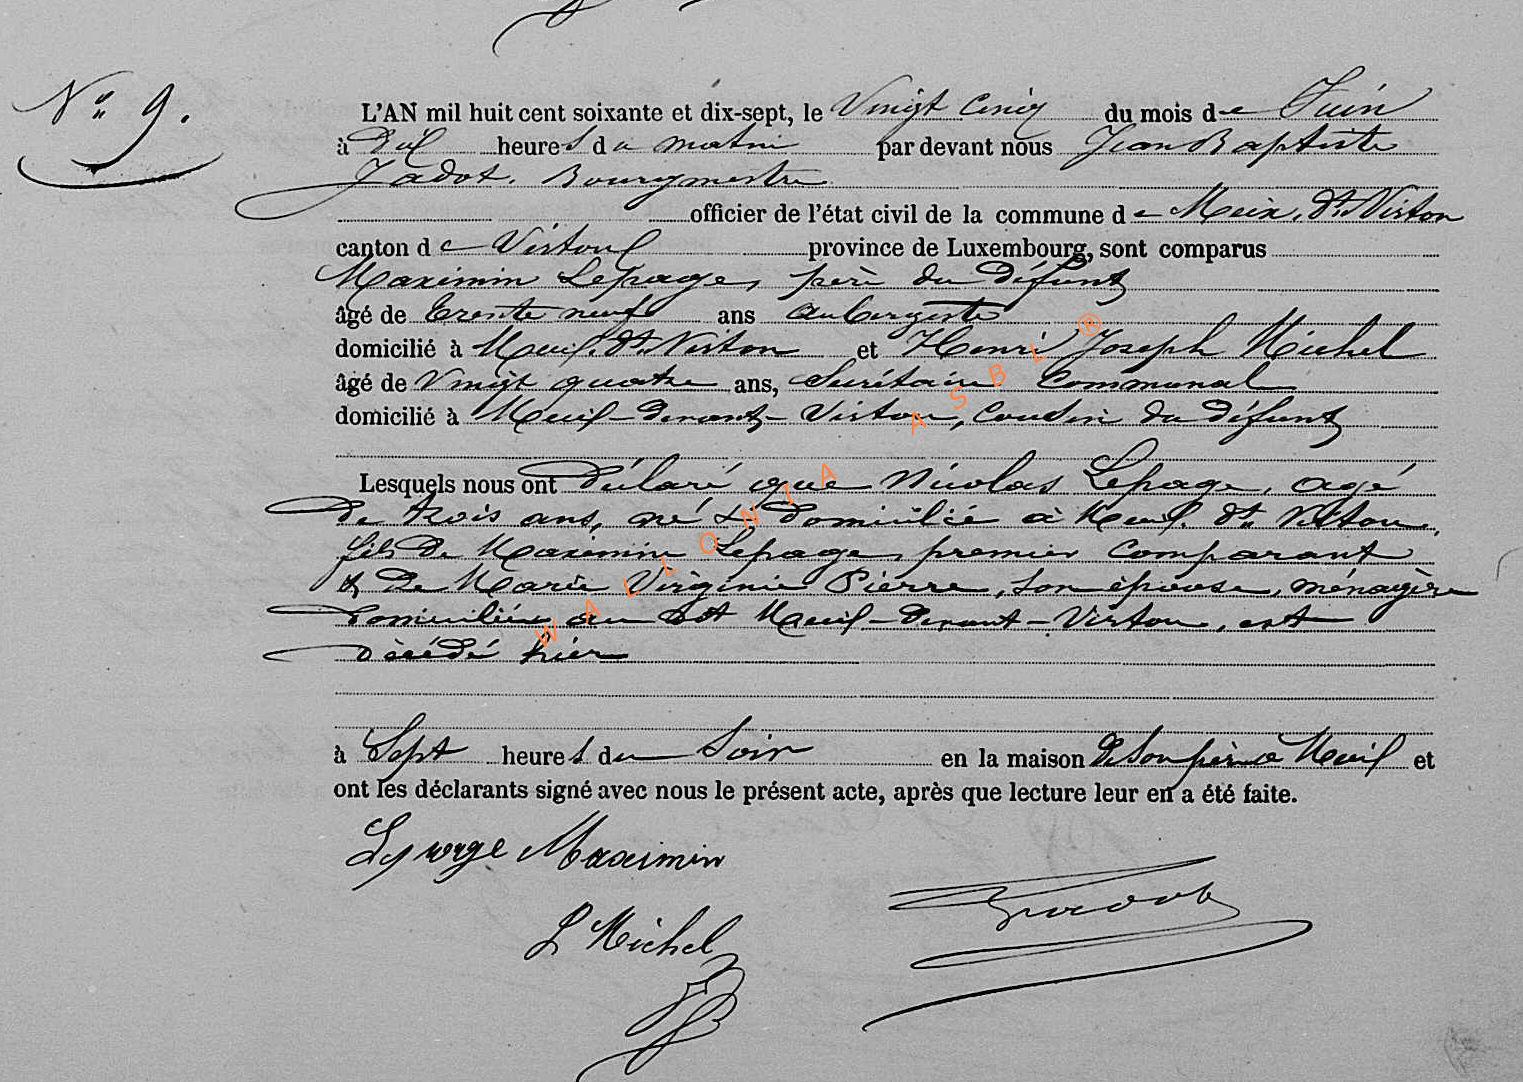 N° 9.
L'AN mil huit cent soixante et dix-sept, le Vingt Cinq du mois de Juin
à dix heures du matin par devant nous Jean Baptiste
Jadot, Bourgmestre
officier de l'état civil de la commune de Meix, dt Virton
canton de Virton province de Luxembourg, sont comparus
Maximin Lepage, père du défunt
âgé de trente neuf ans aubergiste
domicilié à Meix. dt Virton et Henri Joseph Michel
âgé de Vingt quatre ans, Secrétaire Communal
domicilié à Meix-devant-Virton, Cousin du défunt
Lesquels nous ont déclaré que Nicolas Lepage, agé
de trois ans, né & domicilié à Meix. dt Virton,
fils de Maximin Lepage, premier Comparant
& de Marie Virginie Pierre, son épouse, ménagère
domiciliée au dit Meix-devant-Virton, est
décédé hier
à Sept heures du Soir en la maison de son père à Meix et
ont les déclarants signé avec nous le présent acte, après que lecture leur en a été faite.
Lepage Maximin
Michel
WALLONIA ASBL ®